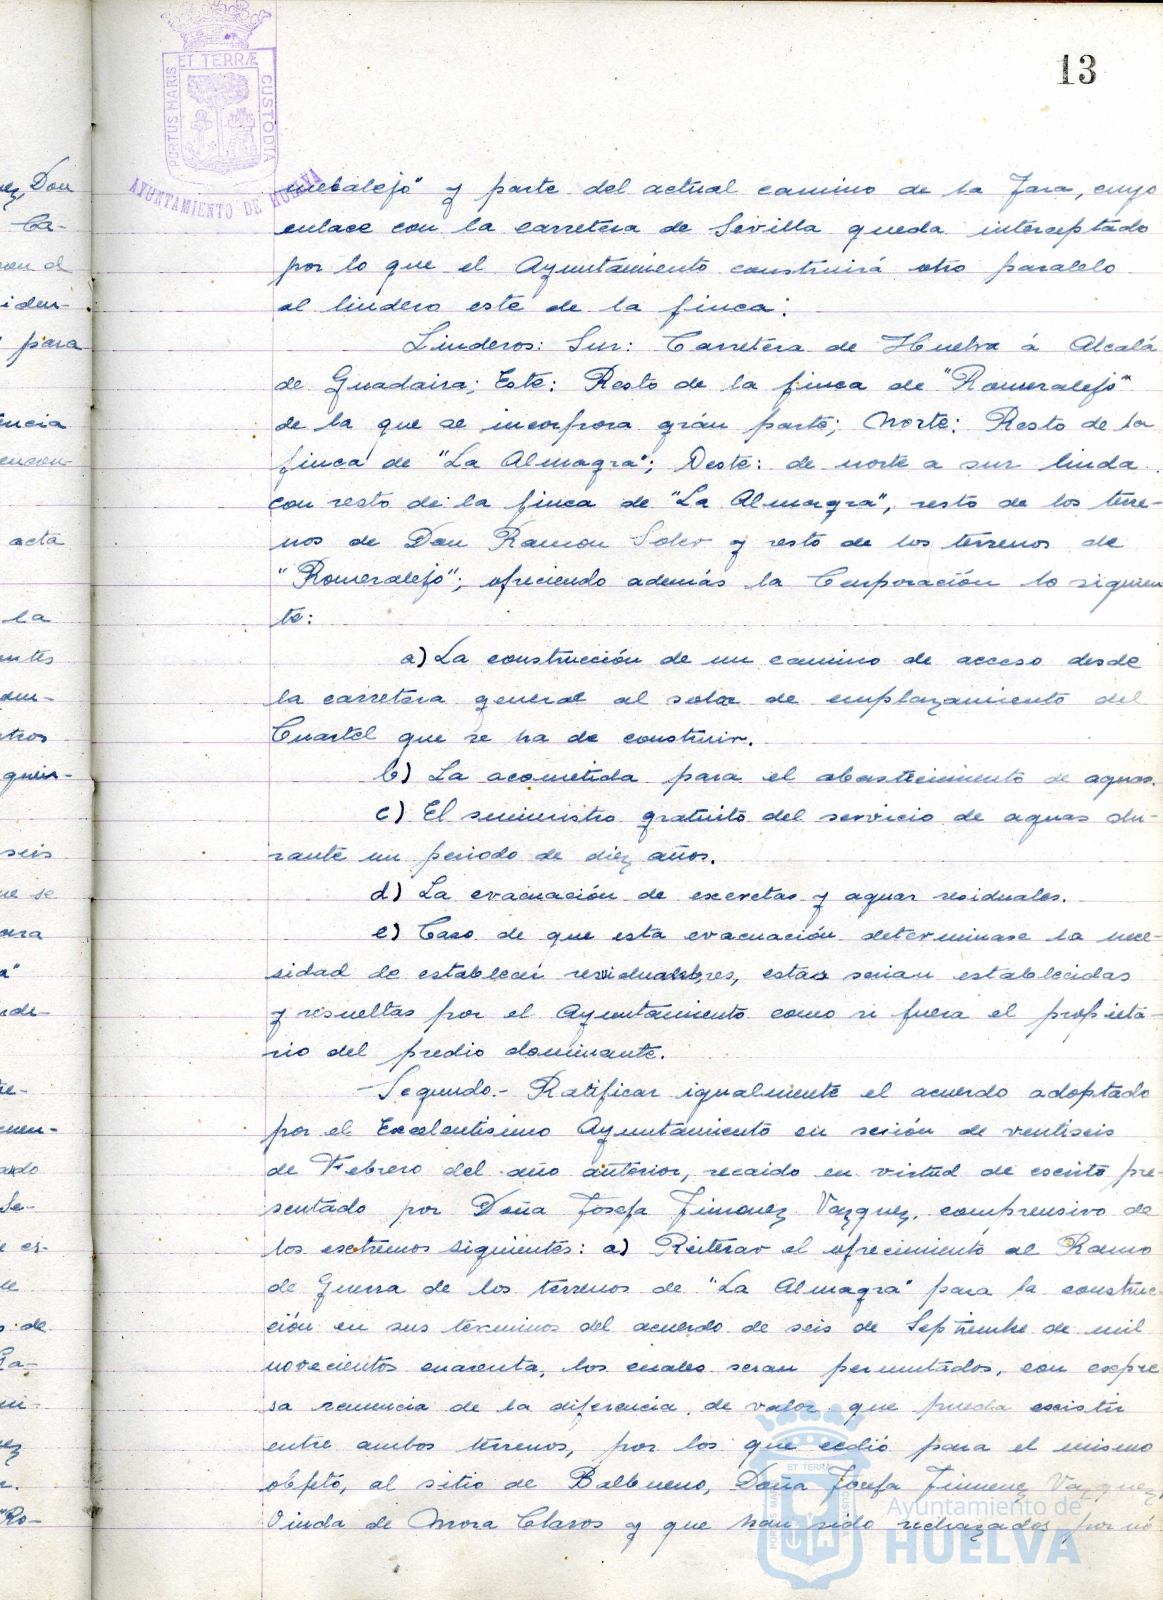 13
PORTUS MARIS ET TERRÆ CUSTODIA
AYUNTAMIENTO DE HUELVA
ez, Don
Ca-
para
acta
la
seis
ue se
"Ro-
meralejo" y parte del actual camino de la Jara, cuyo
enlace con la carretera de Sevilla queda interceptado
por lo que el Ayuntamiento construirá otro paralelo
al lindero este de la finca:
Linderos: Sur: Carretera de Huelva á Alcalá
de Guadaira; Este: Resto de la finca de "Romeralejo"
de la que se incorpora grán parte; Norte: Resto de la
finca de "La Almagra"; Oeste: de norte a sur linda
con resto de la finca de "La Almagra", resto de los terre-
nos de Don Ramon Soler y resto de los terrenos de
"Romeralejo"; ofreciendo además la Corporación lo siguien
te:
a) La construcción de un camino de acceso desde
la carretera general al solar de emplazamiento del
Cuartel que se ha de construir.
b) La acometida para el abastecimiento de aguas.
c) El suministro gratuito del servicio de aguas du-
rante un periodo de diez años.
d) La evacuación de excretas y aguas residuales.
e) Caso de que esta evacuación determinase la nece-
sidad de establecer, estas serian establecidas
y resueltas por el Ayuntamiento como si fuera el propieta-
rio del predio dominante.
Segundo.- Ratificar igualmente el acuerdo adoptado
por el Excelentisimo Ayuntamiento en sesión de ventiseis
de Febrero del año anterior, recaido en virtud de escrito pre
sentado por Doña Josefa Jimenez Vazquez, comprensivo de
los extremos siguientes: a) Reiterar el ofrecimiento al Ramo
de Guerra de los terrenos de "La Almagra" para la construc-
ción en sus términos del acuerdo de seis de Septiembre de mil
novecientos cuarenta, los cuales seran permutados, con expre
sa renuncia de la diferencia de valor que pueda existir
entre ambos terrenos, por los que cedió para el mismo
objeto, al sitio de Balbueno, Doña Josefa Jimenez Vazquez,
Viuda de Mora Claros y que han sido rechazados por nó
Ayuntamiento de
HUELVA